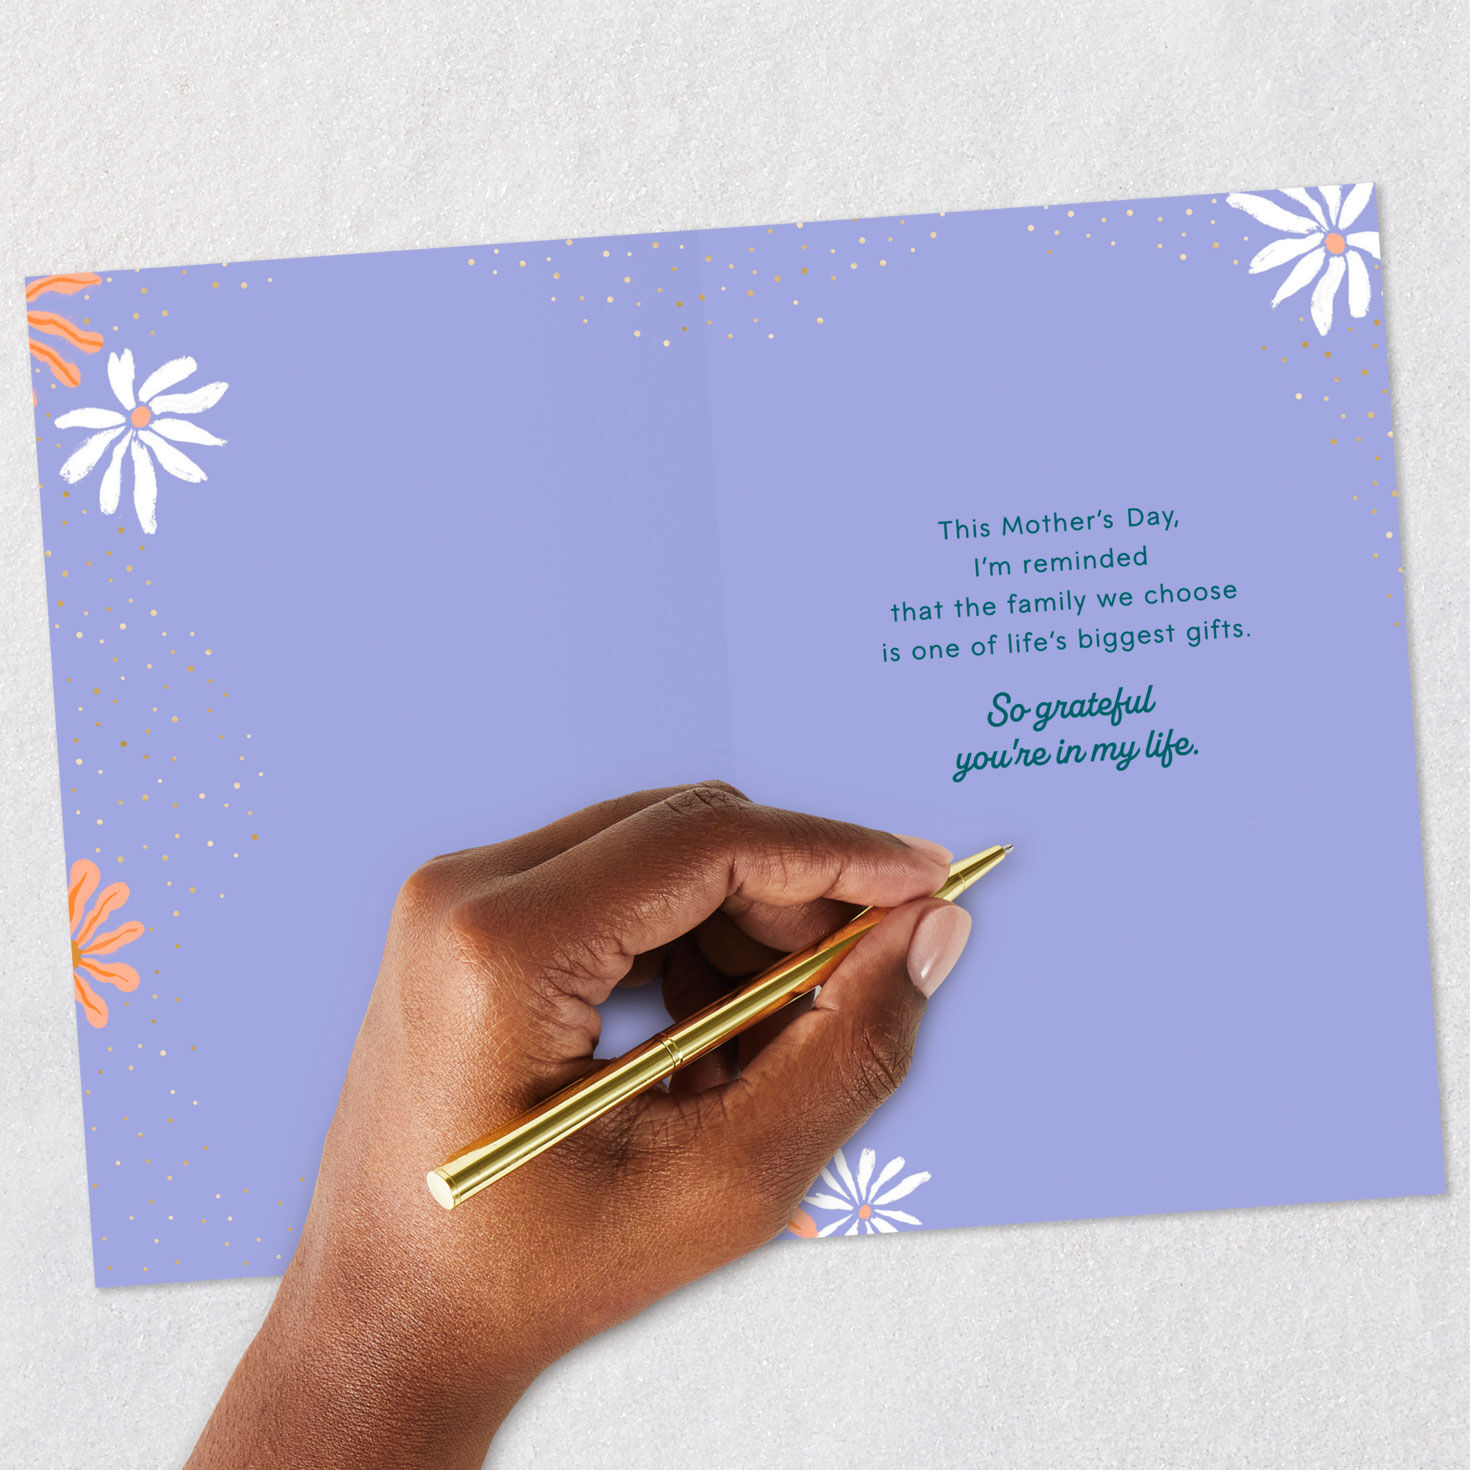 This Mother's Day,
I'm reminded
that the family we choose
is one of life's biggest gifts.
So grateful
you're in my life.